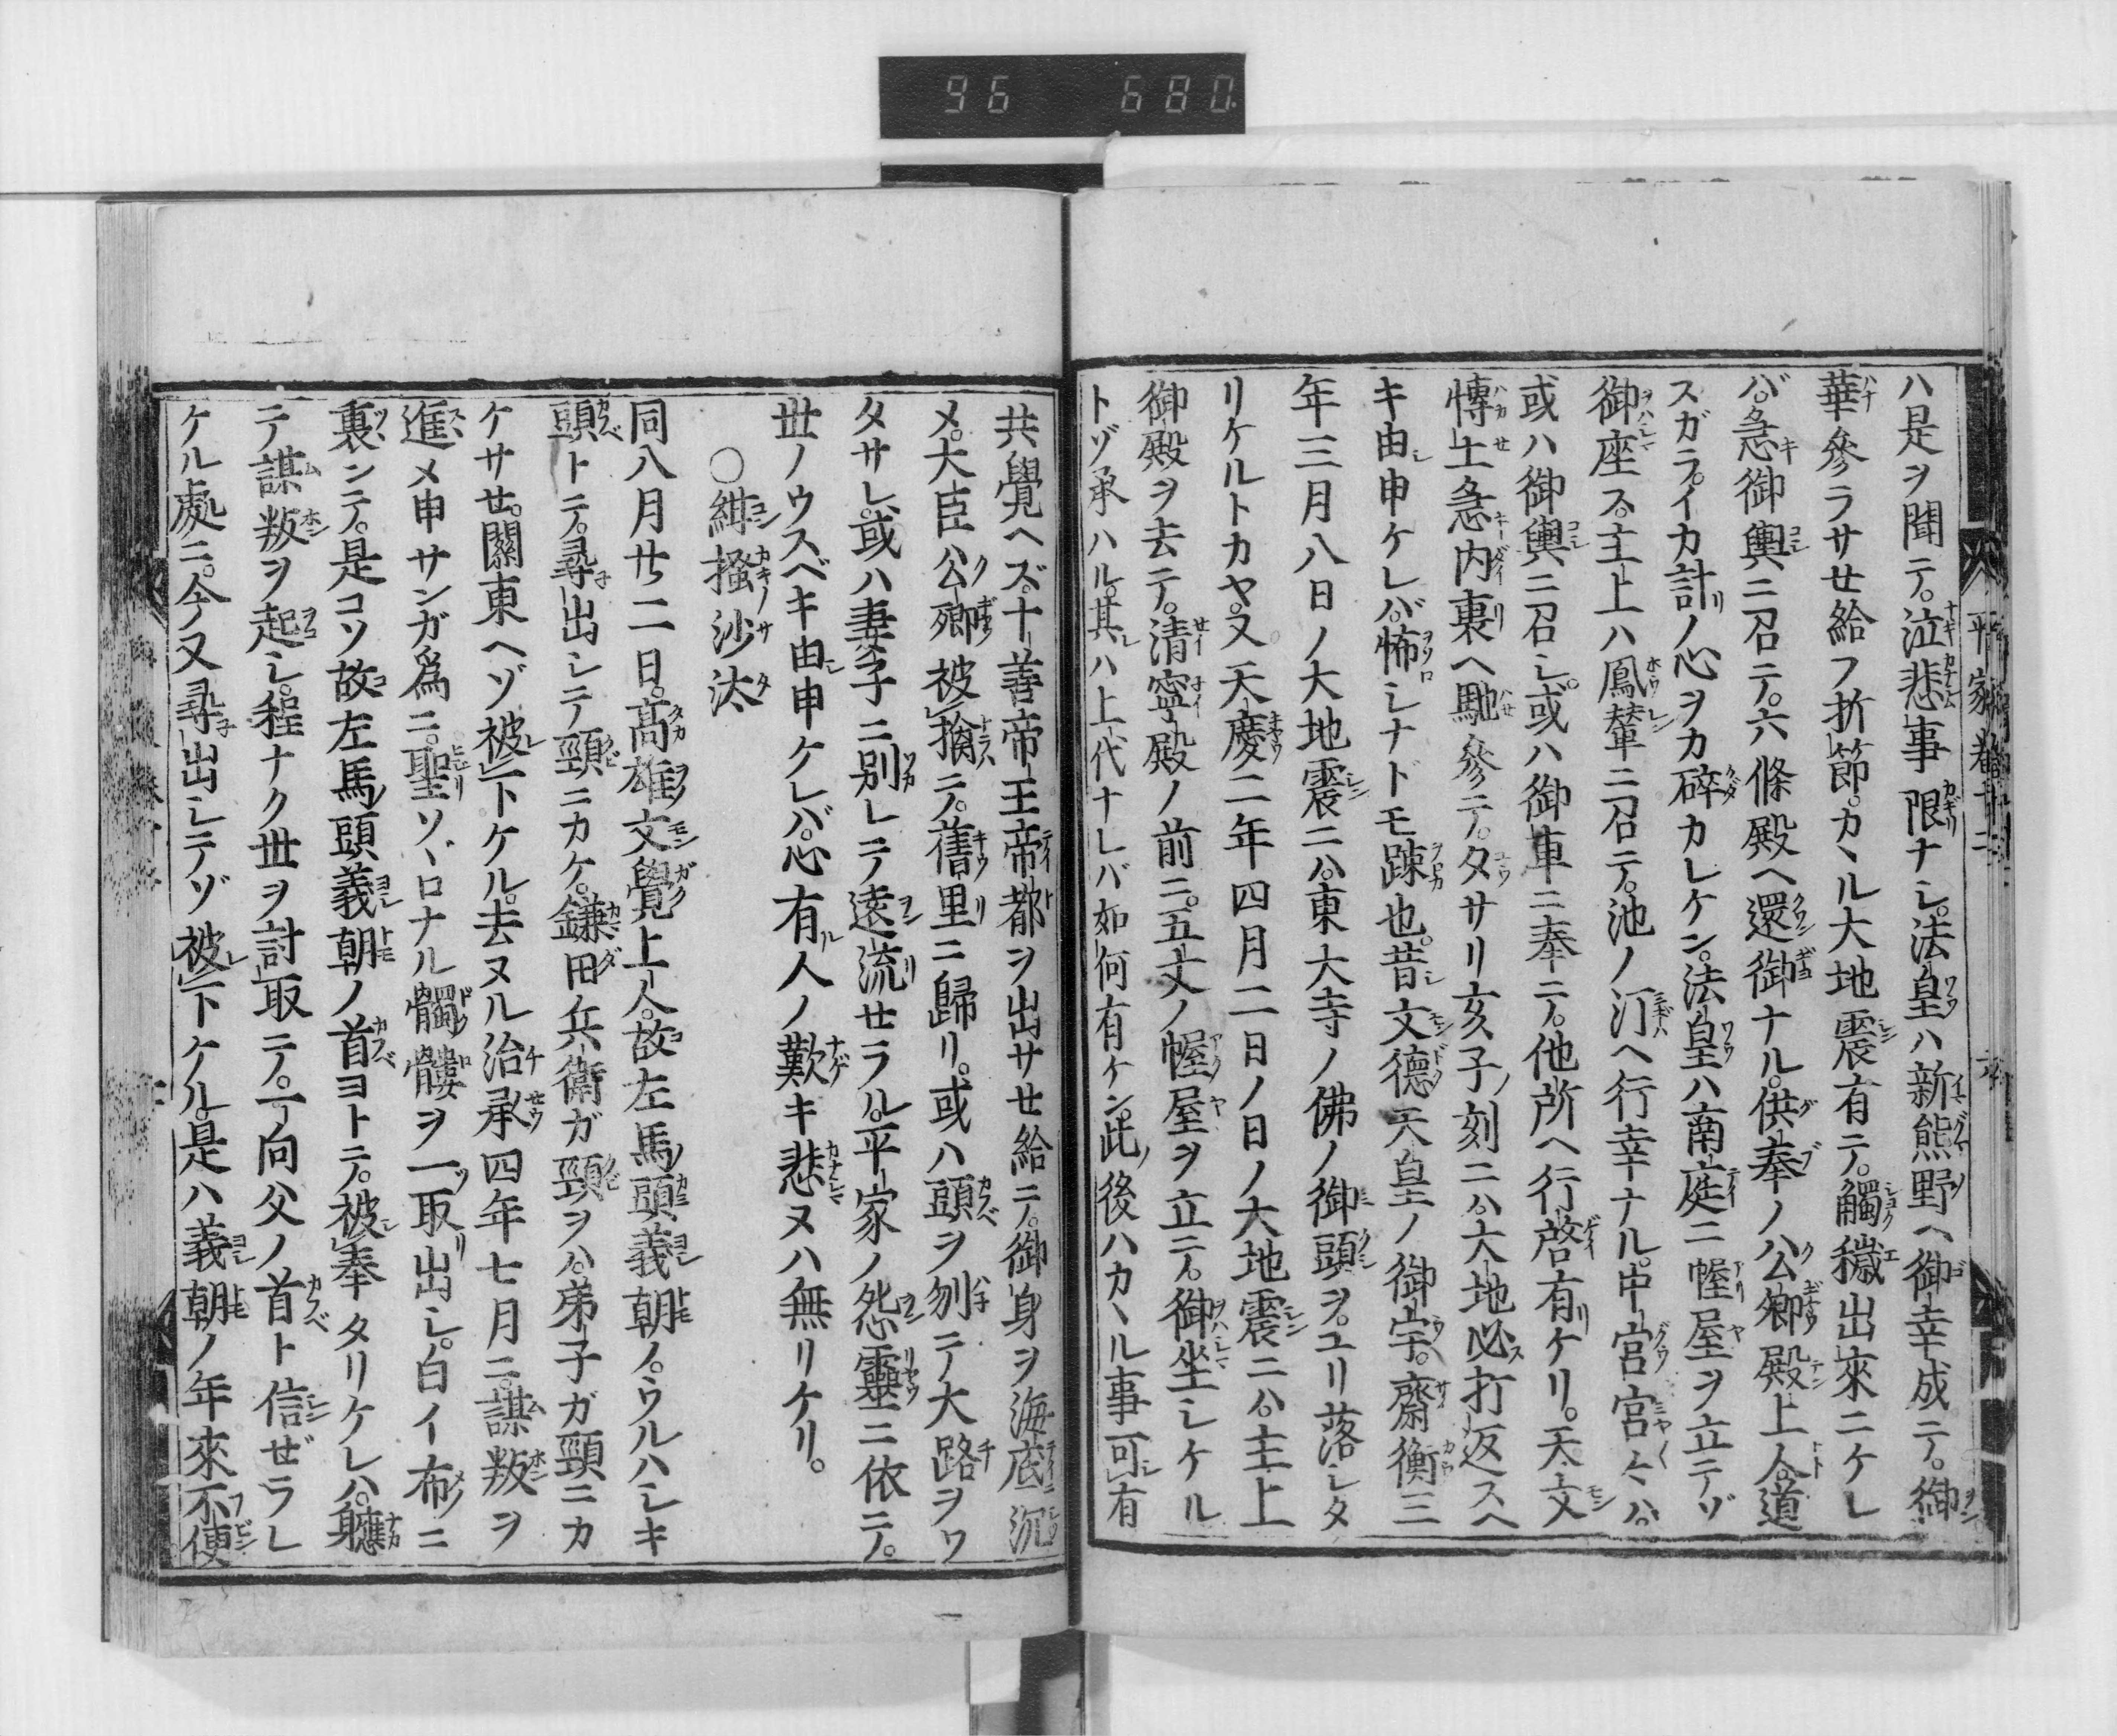 96 680
平家卷十二
ハ是ヲ聞テ。泣悲事限ナシ。法皇ハ新熊野ヘ御幸成テ。御
華參ラサセ給フ折節。カヽル大地震有テ。觸穢出來ニケレ
バ。急御輿ニ召テ。六條殿ヘ還御ナル。供奉ノ公卿殿上人。道
スガラ。イカ計ノ心ヲカ碎カレケン。法皇ハ南庭ニ幄屋ヲ立テゾ
御座ス。主上ハ鳳輦ニ召テ。池ノ汀ヘ行幸ナル。中宮宮々ハ。
或ハ御輿ニ召シ。或ハ御車ニ奉テ。他所ヘ行啓有ケリ。天文
博士急内裏ヘ馳參テ。夕サリ亥子ノ刻ニハ。大地必打返スヘ
キ由申ケレバ。怖シナドモ踈也。昔文德天皇ノ御宇。齋衡三
年三月八日ノ大地震ニハ。東大寺ノ佛ノ御頭ヲ。ユリ落シタ
リケルトカヤ。又天慶二年四月二日ノ日ノ大地震ニハ。主上
御殿ヲ去テ。清寧殿ノ前ニ。五丈ノ幄屋ヲ立テ。御坐シケル
トゾ承ハル。其ハ上代ナレバ如何有ケン。此後ハカヽル事可有
共覺ヘズ。十善帝王帝都ヲ出サセ給テ。御身ヲ海底沉
メ。大臣公卿被擒テ。舊里ニ歸リ。或ハ頭ヲ刎テ大路ヲワ
タサレ。或ハ妻子ニ別レテ遠流セラル。平家ノ怨靈ニ依テ。
世ノウスベキ由申ケレバ。心有人ノ歎キ悲ヌハ無リケリ。
○紺搔沙汰
同八月廿二日。高雄文覺上人。故左馬頭義朝ノ。ウルハシキ
頭トテ。尋出シテ頸ニカケ。鎌田兵衛ガ頸ヲハ。弟子ガ頸ニカ
ケサセ。關東ヘゾ被下ケル。去ヌル治承四年七月ニ。謀叛ヲ
進メ申サンガ爲ニ。聖ソヾロナル髑髏ヲ一取出シ。白イ布ニ
裹ンテ。是コソ故左馬頭義朝ノ首ヨトテ。被奉タリケレハ。軈
テ謀叛ヲ起シ。程ナク世ヲ討取テ。一向父ノ首ト信ぜラレ
ケル處ニ。今又尋出シテゾ被下ケル。是ハ義朝ノ年來不便